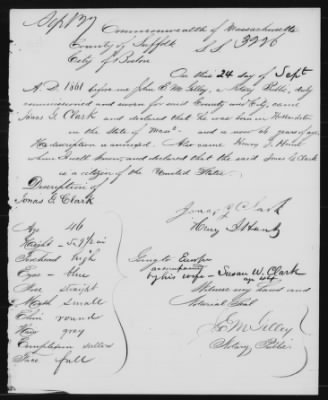 Sept 27
Commonwealth of Massachusetts
County of Suffolk SS 3226
City of Boston
On this 24 day of Sept
A.D. 1861 before me John E M Gilley, a Notary Public, duly
commissioned and sworn for said County and City, came
Jonas G. Clark and declared that he was born in Hubbardston
in the State of Mass - and is now 46 years of age.
His description is annexed. Also came Henry
well known, and declared that the said Jonas G Clark
is a citizen of the United States.
Description of
Jonas G. Clark
Jonas G Clark
Henry
Age 46
Height - 5. 9½ in
Forehead high
Eyes - blue
Nose straight
Mouth small
Chin round
Hair grey
Complexion sallow
Face full
Going to Europe
accompanied
by his wife - Susan W. Clark
Witness my hand and
Notarial Seal
J E M Gilley
Notary Public